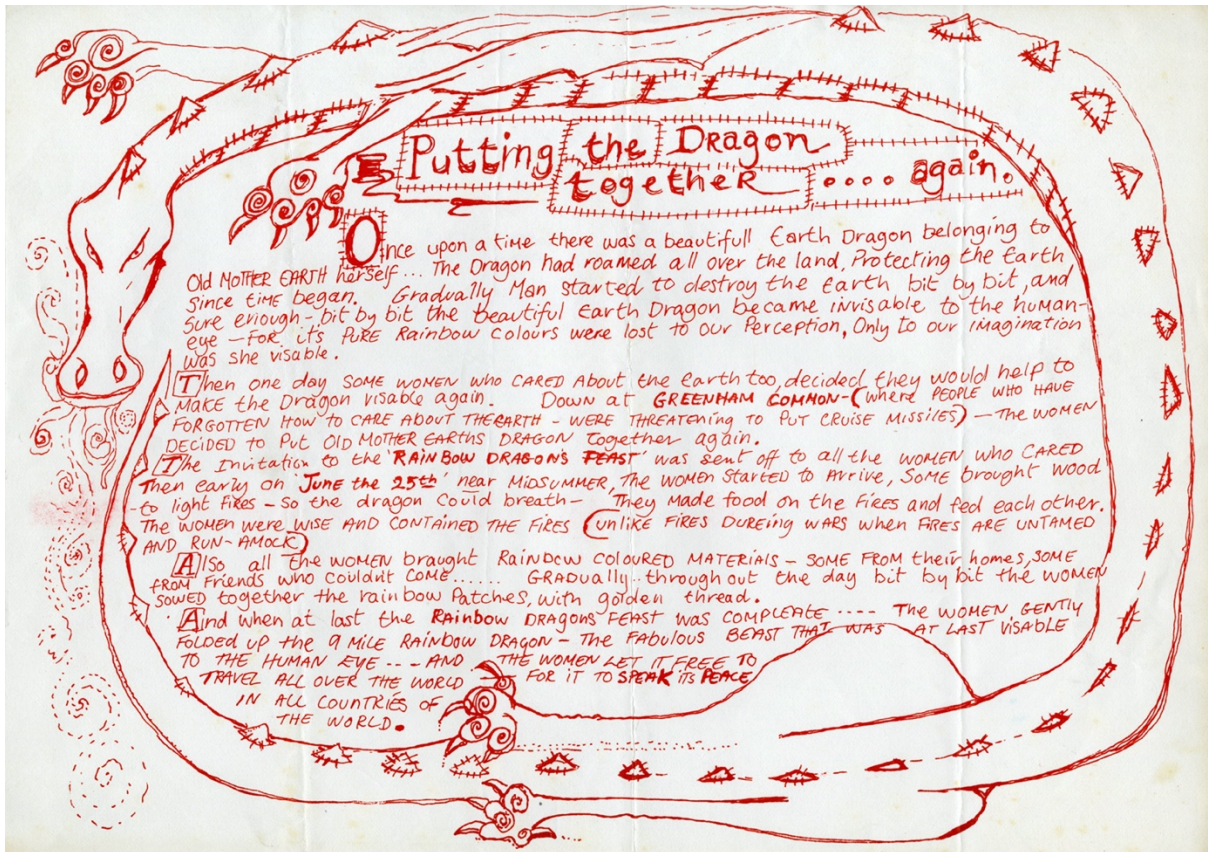 Putting the Dragon
together .... again.
Once upon a time there was a beautifull Earth Dragon belonging to
Old MOTHER EARTH herself... The Dragon had roamed all over the land, Protecting the Earth
since time began. Gradually Man started to destroy the earth bit by bit, and
sure enough - bit by bit the beautiful Earth Dragon became invisable to the human-
eye - FOR it's PURE Rainbow colours were lost to our Perception, Only to our imagination
was she visable.
Then one day SOME WOMEN WHO CARED ABOUT the earth too, decided they would help to
MAKE the Dragon visable again. Down at GREENHAM COMMON - (where PEOPLE WHO HAVE
FORGOTTEN HOW to CARE ABOUT THE EARTH - WERE THREATENING TO PUT CRUISE MISSILES) - The WOMEN
DECIDED TO Put OLD MOTHER EARTHS DRAGON together again.
The Invitation to the 'RAINBOW DRAGON'S FEAST' was sent off to all the WOMEN WHO CARED
Then early on 'June the 25th' near MIDSUMMER, The WOMEN STARTED to Arrive, Some brought wood
- to light fires - so the dragon Could breath - They made food on the FIRES and fed each other.
The WOMEN were WISE AND CONTAINED THE FIRES (UNLIKE FIRES DUREING WARS when FIRES ARE UNTAMED
AND RUN-AMOCK)
Also all the WOMEN braught RAINBOW COLOURED MATERIALS - SOME FROM their homes, SOME
FROM Friends who couldnt COME...... GRADUALLY.. through out the day bit by bit the WOMEN
SOWED together the rainbow Patches, with golden thread.
And when at last the RAINBOW DRAGONS FEAST was COMPLEATE ---- The WOMEN, GENTLY
FOLDED up the 9 MILE RAINBOW DRAGON - THE FABULOUS BEAST THAT WAS AT LAST VISABLE
TO THE HUMAN EYE --- AND THE WOMEN LET IT FREE TO
TRAVEL ALL OVER THE WORLD - FOR IT TO SPEAK ITS PEACE
IN ALL COUNTRIES OF
THE WORLD.